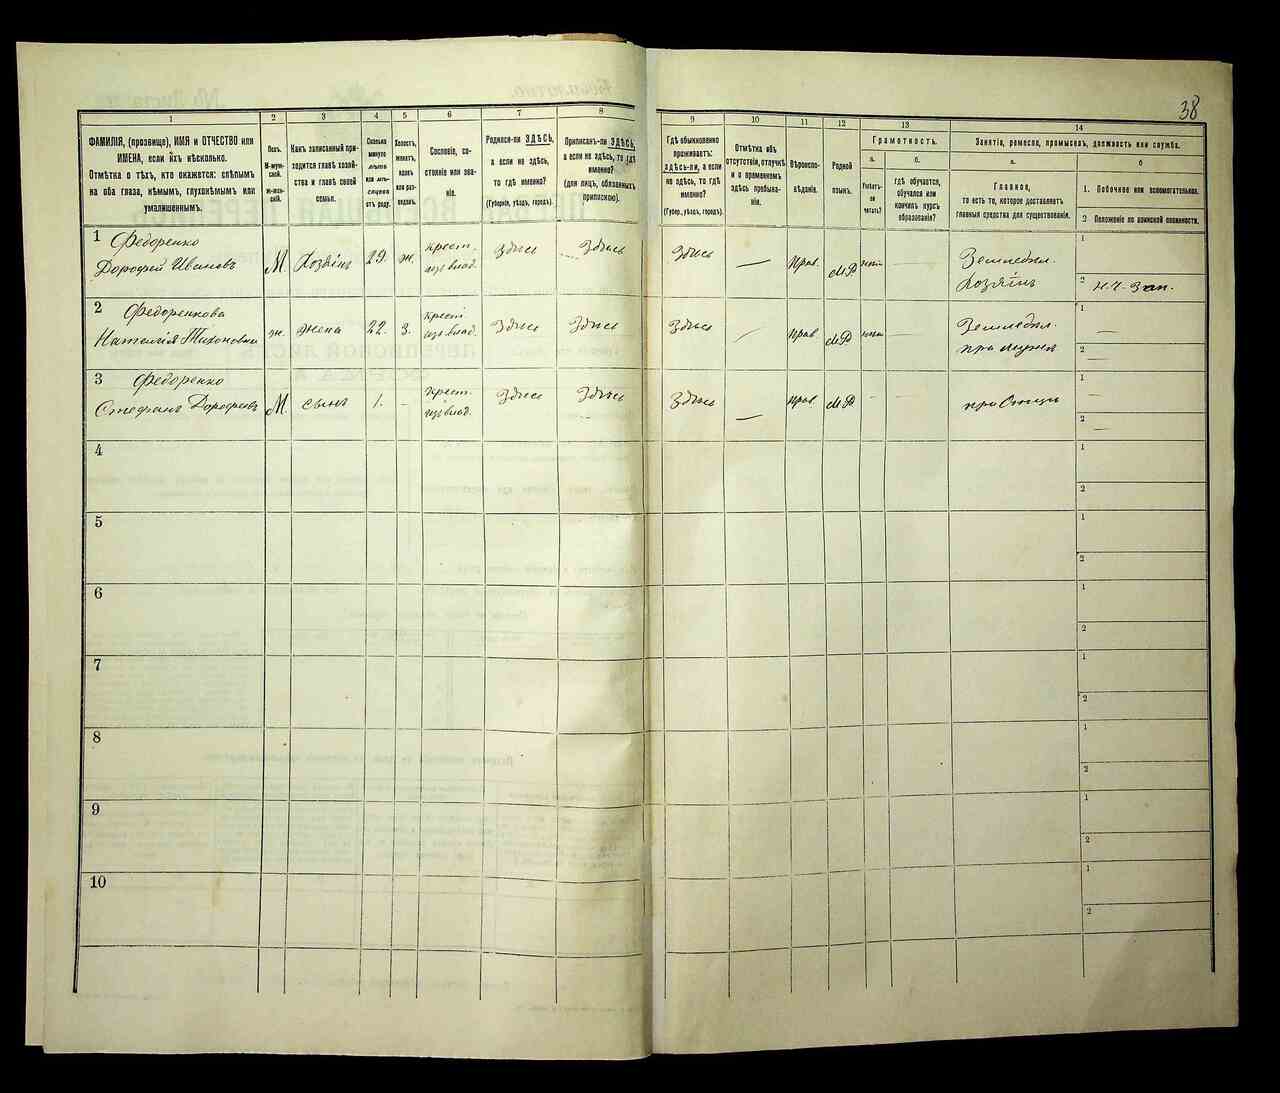 38
1 2 3 4 5 6 7 8 9 10 11 12 13 14
ФАМИЛІЯ, (прозвище), ИМЯ и ОТЧЕСТВО или
ИМЕНА, если ихъ нѣсколько.
Отмѣтка о тѣхъ, кто окажется: слѣпымъ
на оба глаза, нѣмымъ, глухонѣмымъ или
умалишеннымъ.
Полъ.
М-муж-
ской.
ж-жен-
скій.
Какъ записанный при-
ходится главѣ хозяй-
ства и главѣ своей
семьи.
Сколько
минуло
лѣтъ
или мѣ-
сяцевъ
отъ роду.
Холостъ,
женатъ,
вдовъ
или раз-
веденъ.
Сословіе, со-
стояніе или зва-
ніе.
Родился-ли ЗДѢСЬ,
а если не здѣсь,
то гдѣ именно?
(Губернія, уѣздъ, городъ).
Приписанъ-ли ЗДѢСЬ,
а если не здѣсь, то гдѣ
именно?
(для лицъ, обязанныхъ
припискою).
Гдѣ обыкновенно
проживаетъ:
здѣсь-ли, а если
не здѣсь, то гдѣ
именно?
(Губер., уѣздъ, городъ).
Отмѣтка объ
отсутствіи, отлучкѣ
и о временномъ
здѣсь пребыва-
ніи.
Вѣроиспо-
вѣданіе.
Родной
языкъ.
Грамотность.
а.
Умѣетъ-
ли
читать?
б.
гдѣ обучается,
обучался или
кончилъ курсъ
образованія?
Занятія, ремесла, промыселъ, должность или служба.
а.
Главное,
то есть то, которое доставляетъ
главныя средства для существованія.
б
1. Побочное или вспомогательное.
2 Положеніе по воинской повинности.
1 Федоренко
Дорофей Ивановъ М. Хозяинъ 29. ж. крест. из влад. Здѣсь Здѣсь Здѣсь — Прав. МР — Земледѣл. Хозяинъ 1
2
2 Федоренкова
Наталія Тихоновна ж. жена 22. З. крест из влад. Здѣсь Здѣсь Здѣсь — Прав МР — Земледѣл. при мужѣ 1 —
2 —
3 Федоренко
Стефанъ Дорофеевъ М. сынъ 1. — крест. из влад. Здѣсь Здѣсь Здѣсь — Прав. МР — — при Отцѣ 1 —
2 —
4 1
2
5 1
2
6 1
2
7 1
2
8 1
2
9 1
2
10 1
2